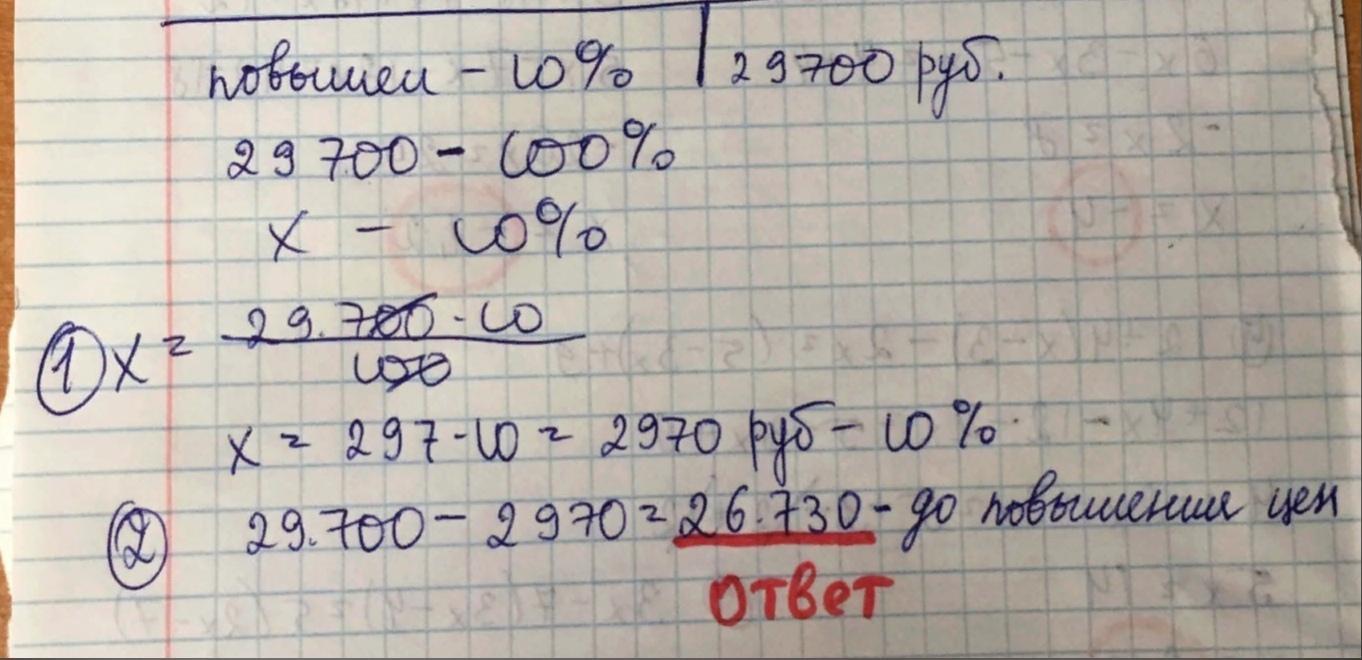 повышен - 10% | 29700 руб.
29700 - 100%
x - 10%
① x = 29.700 · 10
100
x = 297 · 10 = 2970 руб - 10%
② 29.700 - 2970 = 26.730 - до повышения цен
Ответ